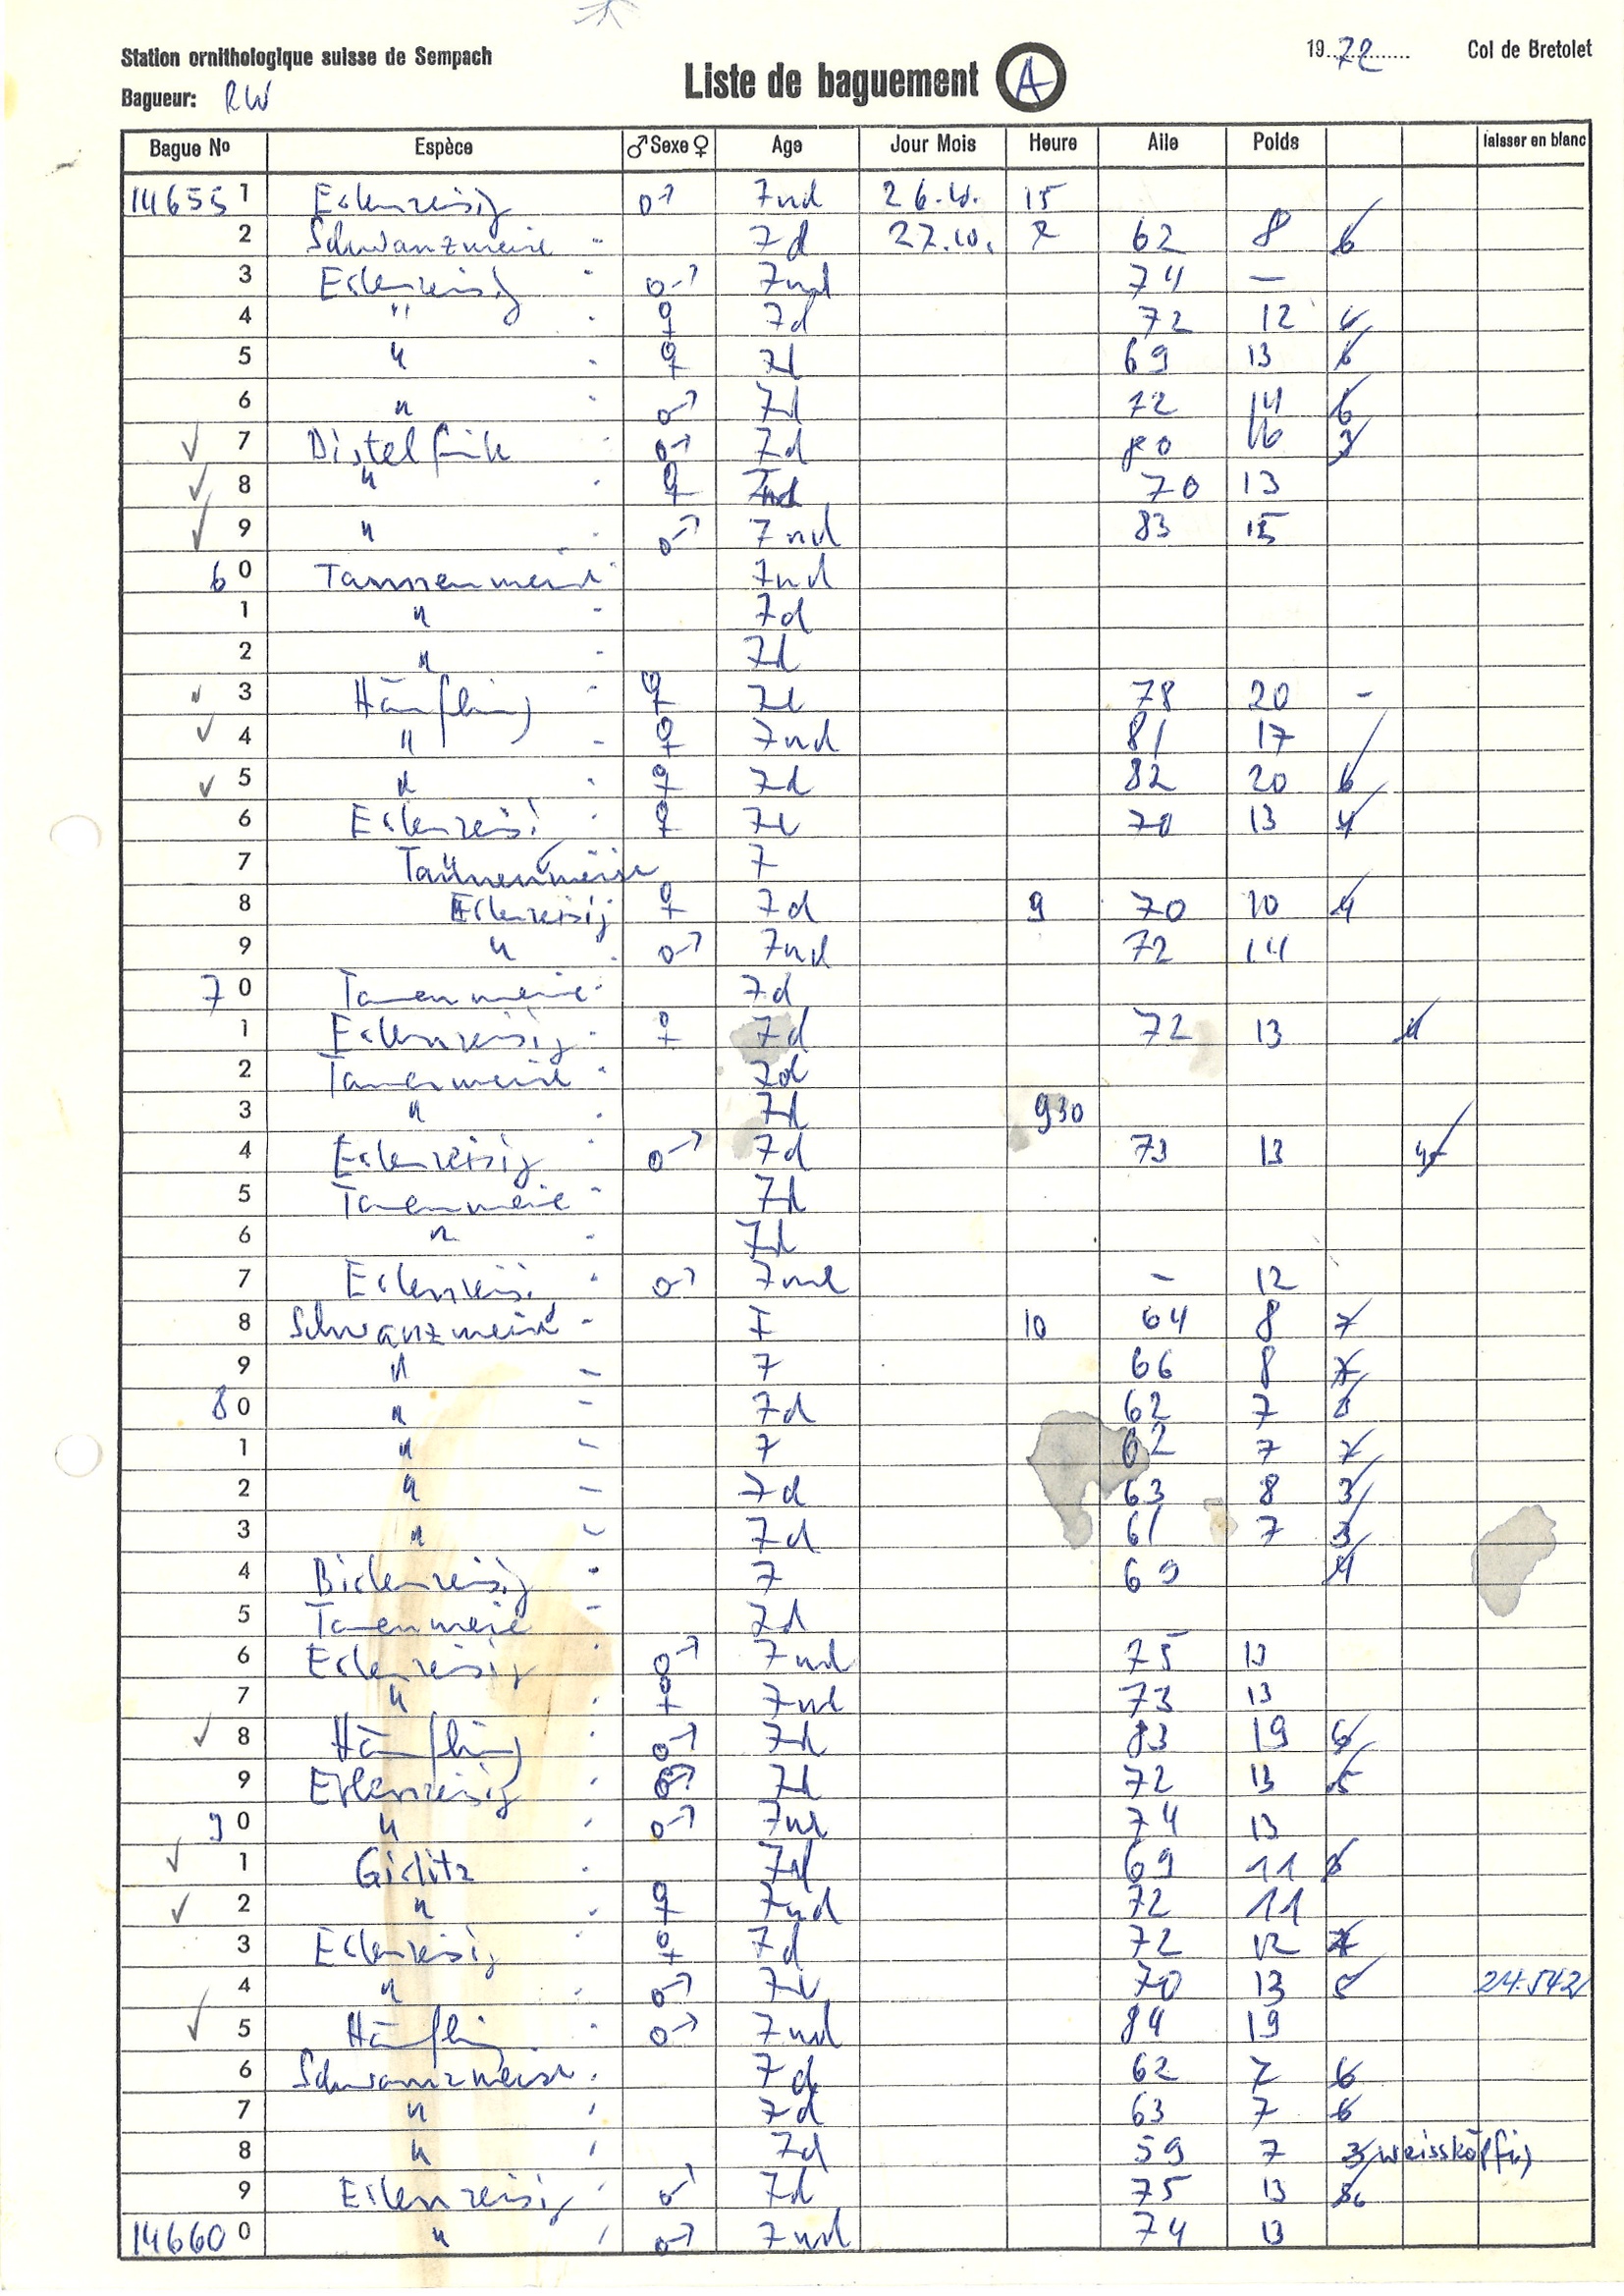 Station ornithologique suisse de Sempach
1972 Col de Bretolet
Liste de baguement A
Bagueur: RW
Bague No Espèce ♂ Sexe ♀ Age Jour Mois Heure Aile Poids laisser en blanc
14655 1 Erlenzeisig ♂ 7nd 26.10. 15
2 Schwanzmeise 7d 27.10. 62 8 6
3 Erlenzeisig ♂ 7nd 74 —
4 " ♀ 7d 72 12
5 " ♀ 7d 69 13 6
6 " ♂ 7d 72 14 6
✓ 7 Distelfink ♂ 7d 80 16 3
✓ 8 " ♀ 7nd 70 13
✓ 9 " ♂ 7nd 83 15
6 0 Tannenmeise 7nd
1 " 7d
2 " 7d
✓ 3 Hänfling ♀ 7d 78 20 -
✓ 4 " ♀ 7nd 81 17
✓ 5 " ♀ 7d 82 20 6
6 Erlenzeisig ♀ 7d 70 13 4
7 Tannenmeise 7
8 Erlenzeisig ♀ 7d 9 70 10 4
9 " ♂ 7nd 72 14
7 0 Tannenmeise 7d
1 Erlenzeisig ♀ 7d 72 13 4
2 Tannenmeise 7d
3 " 7d 930
4 Erlenzeisig ♂ 7d 73 13
5 Tannenmeise 7d
6 " 7d
7 Erlenzeisig ♂ 7nd - 12
8 Schwanzmeise 7 10 64 8 7
9 " 7 66 8 7
8 0 " 7d 62 7
1 " 7 62 7 7
2 " 7d 63 8 3
3 " 7d 61 7 3
4 Birkenzeisig 7 69 4
5 Tannenmeise 7d
6 Erlenzeisig ♂ 7nd 75 13
7 " ♀ 7nd 73 13
✓ 8 Hänfling ♂ 7d 83 19 6
9 Erlenzeisig ♂ 7d 72 13 5
9 0 " ♂ 7nd 74 13
✓ 1 Girlitz 7d 69 11 6
✓ 2 " ♀ 7nd 72 11
3 Erlenzeisig ♀ 7d 72 12
4 " ♂ 7d 70 13 24.542
✓ 5 Hänfling ♂ 7nd 84 19
6 Schwanzmeise 7d 62 7 6
7 " 7d 63 7 6
8 " 7d 59 7 3 weissköpfig
9 Erlenzeisig ♂ 7d 75 13
14660 0 " ♂ 7nd 74 13